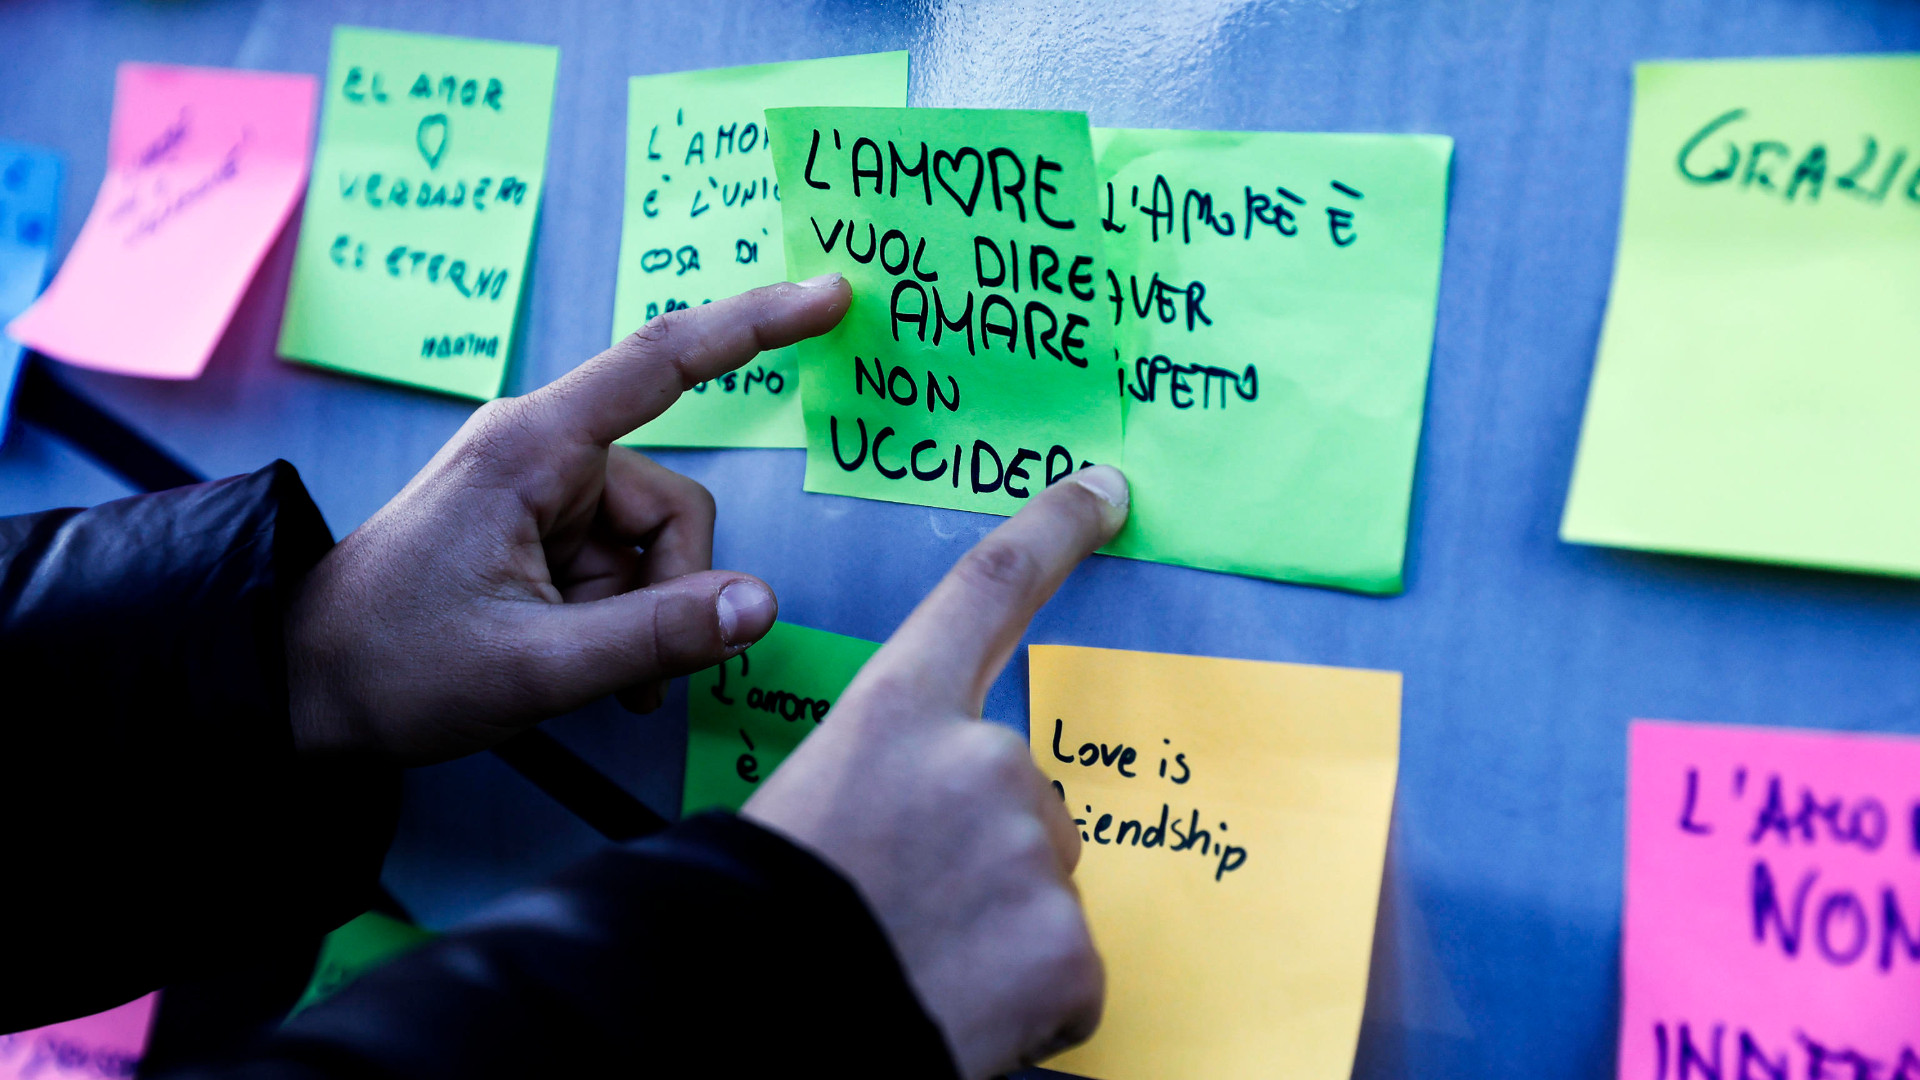 EL AMOR
VERDADERO
ES ETERNO
MARTHA
L'AMO
È L'UNIC
COSA DI
L'AMORE
VUOL DIRE
AMARE
NON
UCCIDER
L'AMORE È
AVER
ISPETTO
GRAZIE
L'amore
è
Love is
friendship
L'AMO
NON